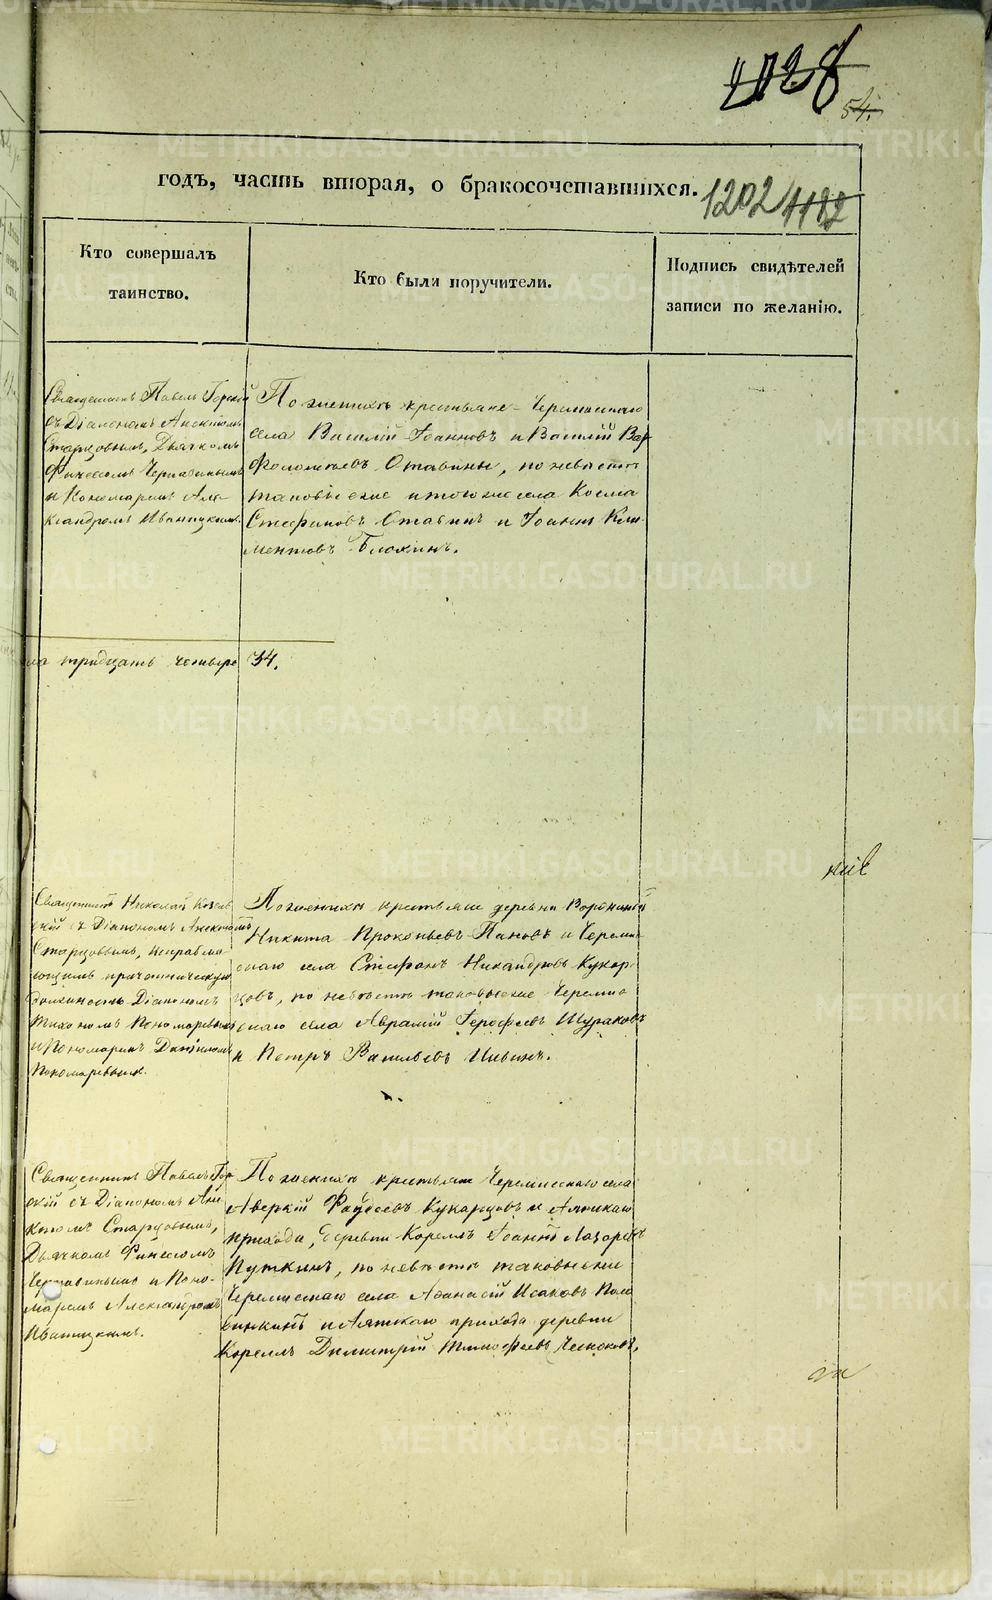 1128
54.
годъ, часть вторая, о бракосочетавшихся.
1202 1182
Кто совершалъ
таинство.
Кто были поручители.
Подпись свидѣтелей
записи по желанію.
Священникъ Павелъ Горскій
съ Діакономъ Аникитомъ
Старцовымъ, Дьячкомъ
Финеесомъ Чернавинымъ
и Пономаремъ Але-
ксандромъ Иваницкимъ.
По женихѣ крестьяне Черемисскаго
села Василій Іоанновъ и Василій Вар-
фоломеевъ Отавины, по невѣстѣ
таковые же и того же села Косма
Стефановъ Отавинъ и Іоаннъ Кли-
ментовъ Блохинъ.
тридцать четыре 34.
Священникъ Николай
съ Діакономъ Аникитомъ
Старцовымъ, исправля-
ющимъ причетническую
должность Діакономъ
Тихономъ Пономаревымъ
и Пономаремъ Даніиломъ
Пономаревымъ.
По женихѣ крестьяне деревни Воронина
Никита Прокопьевъ Пановъ и Череми-
скаго села Стефанъ Никандровъ Кукар-
цовъ, по невѣстѣ таковые же Черемис-
скаго села Аврамій Ерофѣевъ Шураковъ
и Петръ Васильевъ Ильинъ.
Священникъ Павелъ Гор-
скій съ Діакономъ Ани-
китомъ Старцовымъ,
Дьячкомъ Финеесомъ
Чернавинымъ и Поно-
маремъ Александромъ
Иваницкимъ.
По женихѣ крестьяне Черемисскаго села
Аверкій Фаддеевъ Кукарцовъ и Аятскаго
прихода, деревни Корелъ Іоаннъ Лазаревъ
Путкинъ, по невѣстѣ таковые же
Черемисскаго села Аѳанасій Исаковъ
и Аятскаго прихода деревни
Корелъ Димитрій Тимофѣевъ Чесноковъ.